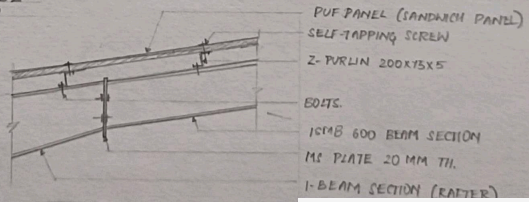 PUF PANEL (SANDWICH PANEL)
SELF-TAPPING SCREW
Z-PURLIN 200X75X5
BOLTS.
ISMB 600 BEAM SECTION
MS PLATE 20 MM TH.
I-BEAM SECTION (RAFTER)